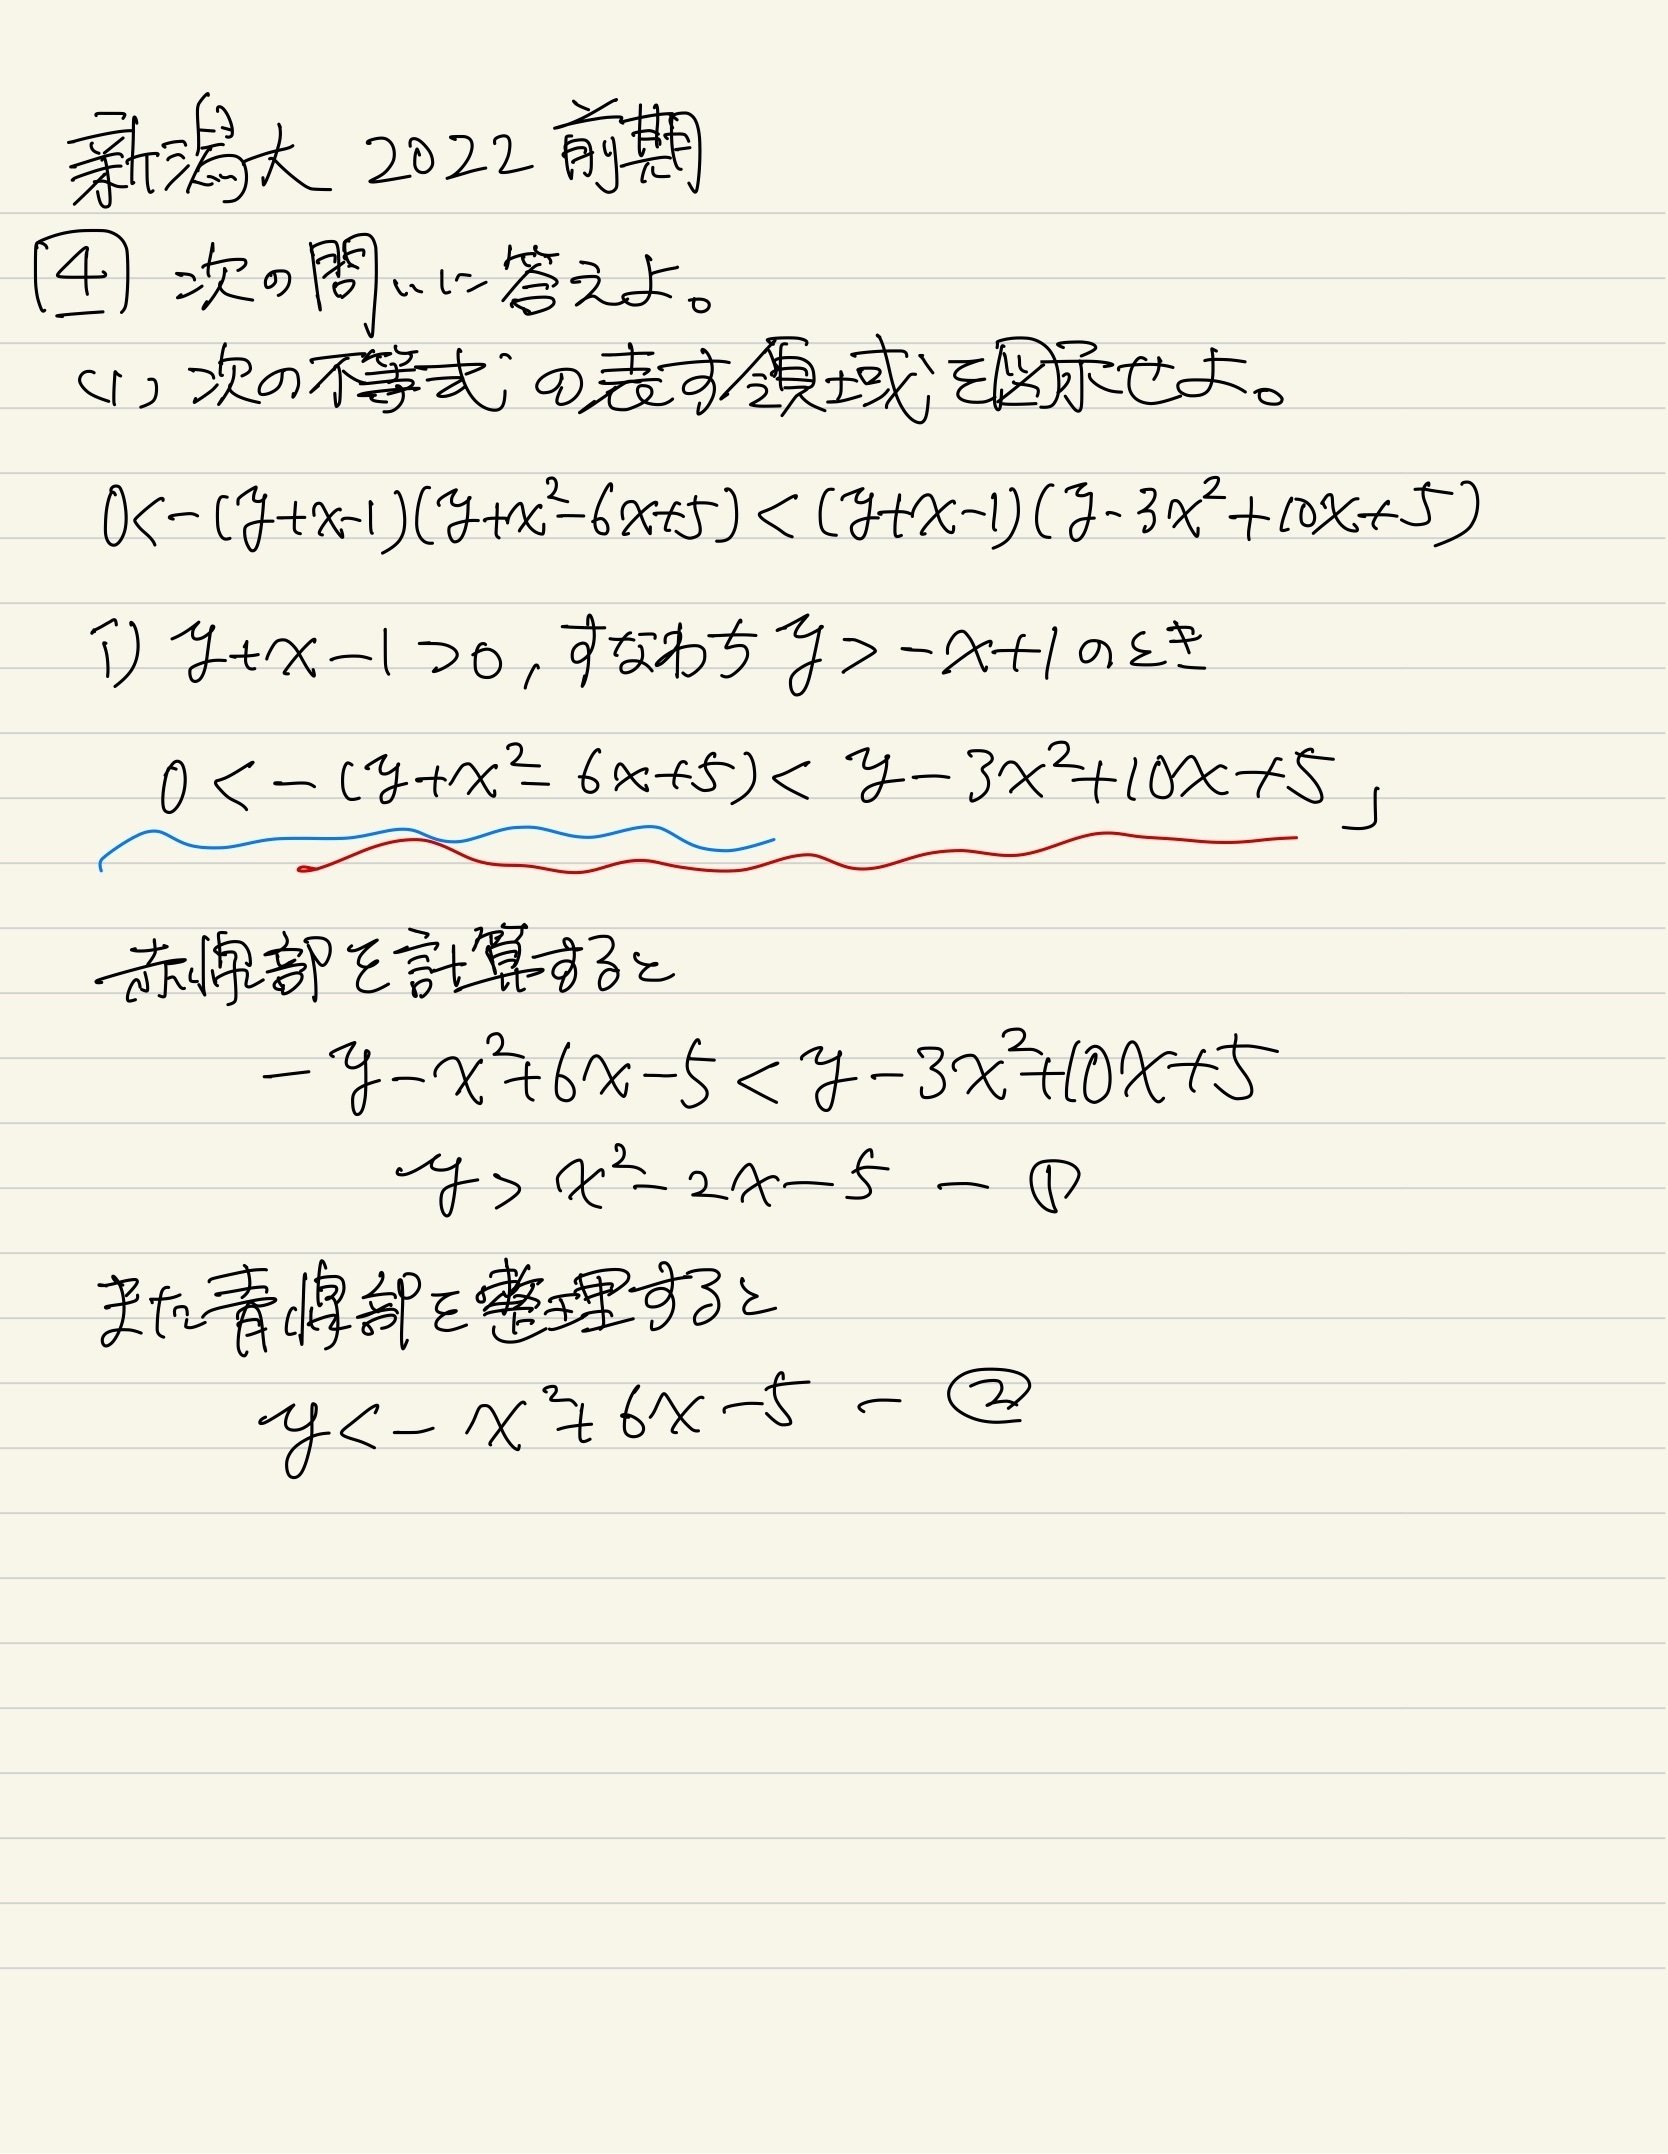 新潟大 2022 前期
4 次の問いに答えよ。
(1) 次の不等式の表す領域を図示せよ。
0<-(y+x-1)(y+x²-6x+5)<(y+x-1)(y-3x²+10x+5)
i) y+x-1>0, すなわち y>-x+1のとき
0<-(y+x²-6x+5)<y-3x²+10x+5」
赤線部を計算すると
-y-x²+6x-5<y-3x²+10x+5
y>x²-2x-5 - ①
また青線部を整理すると
y<-x²+6x-5 - ②